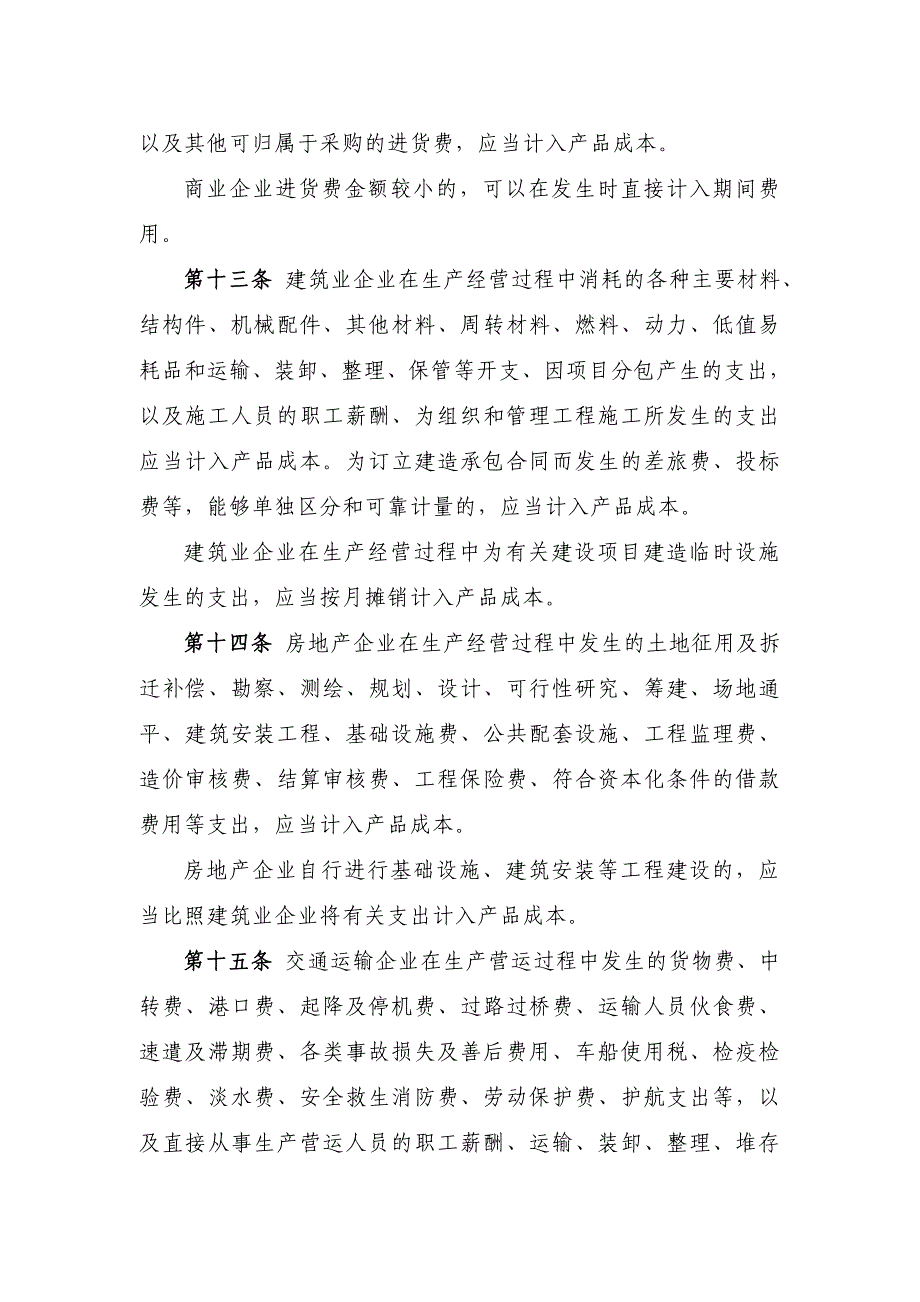 以及其他可归属于采购的进货费，应当计入产品成本。
商业企业进货费金额较小的，可以在发生时直接计入期间费
用。
第十三条 建筑业企业在生产经营过程中消耗的各种主要材料、
结构件、机械配件、其他材料、周转材料、燃料、动力、低值易
耗品和运输、装卸、整理、保管等开支、因项目分包产生的支出，
以及施工人员的职工薪酬、为组织和管理工程施工所发生的支出
应当计入产品成本。为订立建造承包合同而发生的差旅费、投标
费等，能够单独区分和可靠计量的，应当计入产品成本。
建筑业企业在生产经营过程中为有关建设项目建造临时设施
发生的支出，应当按月摊销计入产品成本。
第十四条 房地产企业在生产经营过程中发生的土地征用及拆
迁补偿、勘察、测绘、规划、设计、可行性研究、筹建、场地通
平、建筑安装工程、基础设施费、公共配套设施、工程监理费、
造价审核费、结算审核费、工程保险费、符合资本化条件的借款
费用等支出，应当计入产品成本。
房地产企业自行进行基础设施、建筑安装等工程建设的，应
当比照建筑业企业将有关支出计入产品成本。
第十五条 交通运输企业在生产营运过程中发生的货物费、中
转费、港口费、起降及停机费、过路过桥费、运输人员伙食费、
速遣及滞期费、各类事故损失及善后费用、车船使用税、检疫检
验费、淡水费、安全救生消防费、劳动保护费、护航支出等，以
及直接从事生产营运人员的职工薪酬、运输、装卸、整理、堆存